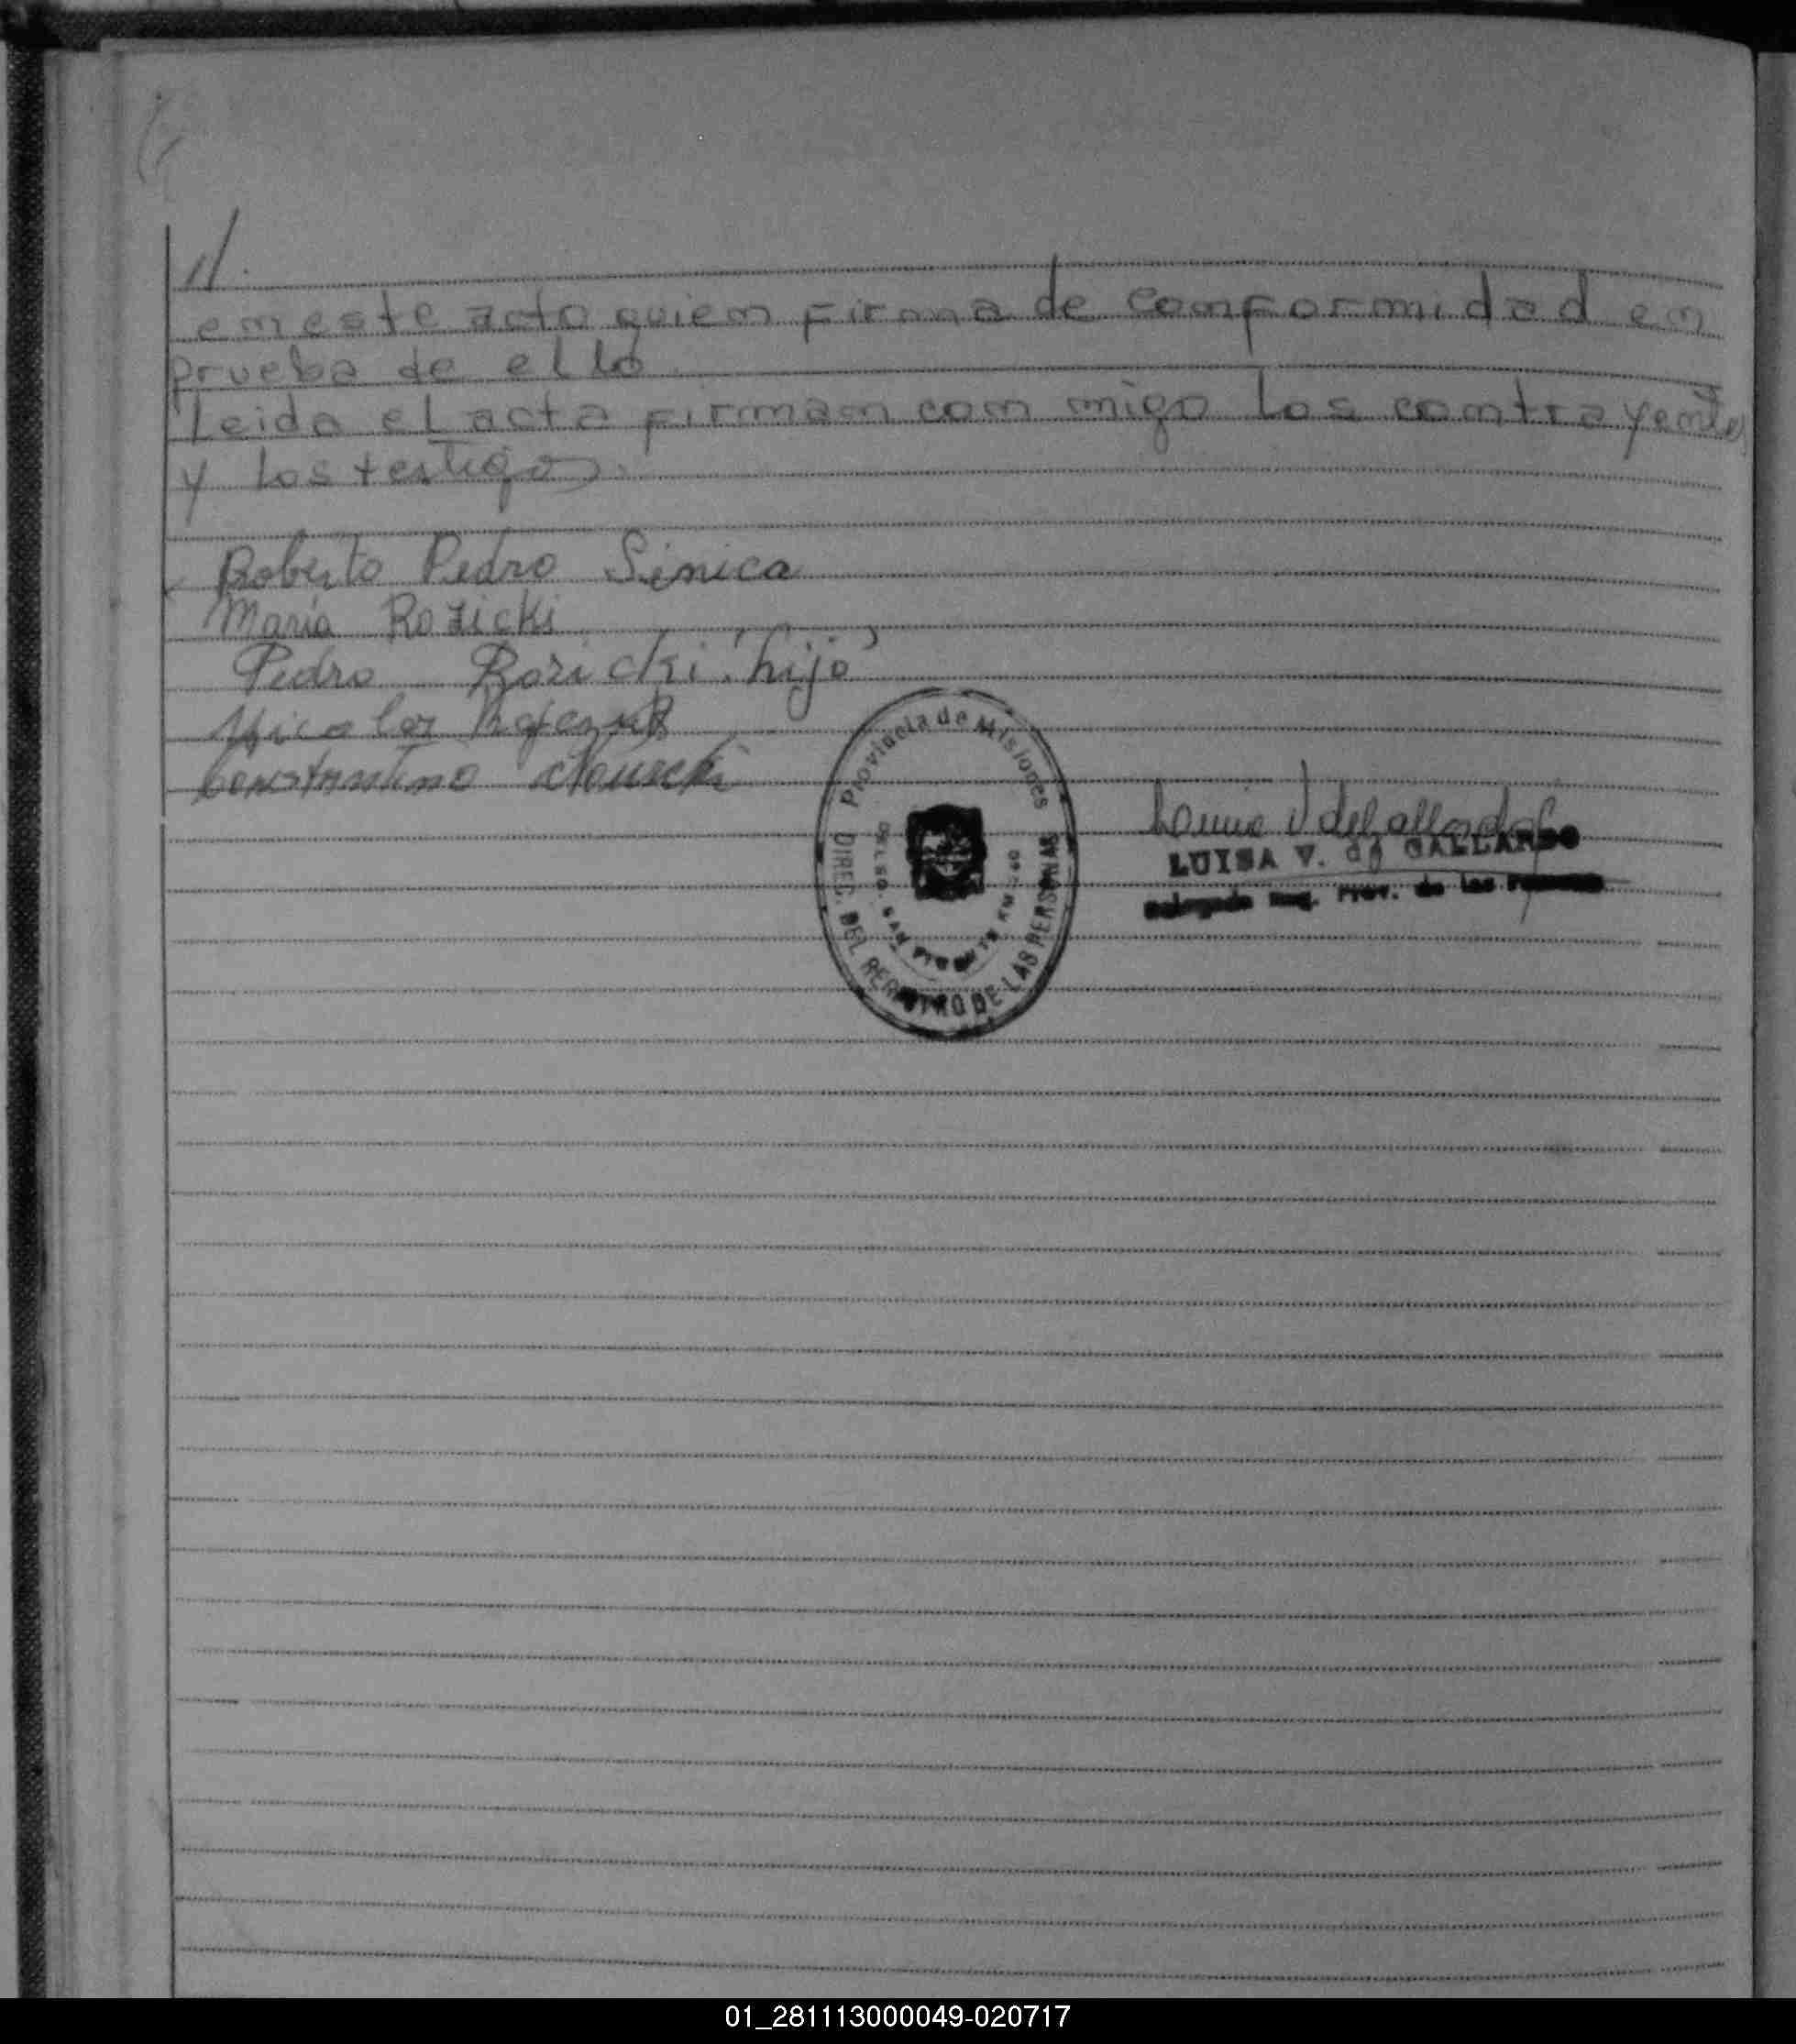 //.
en este acto quien firma de conformidad en
prueba de ello.
Leida el acta firman con migo los contrayentes
y los testigos.
Roberto Pedro Sinica
Maria Rozicki
Pedro Rozicki (hijo)
Nicolas
Constantino
Provincia de Misiones
DIREC. DEL REGISTRO DE LAS PERSONAS
LUISA V. de GALLARDO
Delegada Reg. Prov. de las Personas
01_281113000049-020717